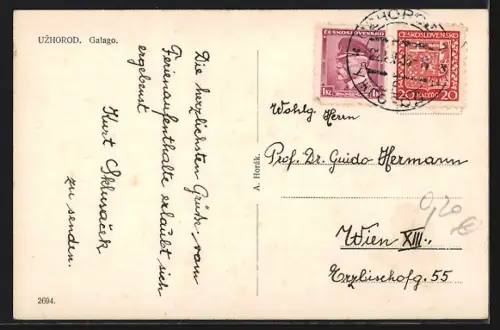 UŽHOROD. Galago.
Die herzlichsten Grüße vom
Ferienaufenthalte erlaubt sich
ergebenst
Kurt
zu senden.
2694.
A. Horák.
ČESKOSLOVENSKO
1 Kč
ČESKOSLOVENSKO
20 HALÉŘŮ 20
Wohlg. Herrn
Prof. Dr. Guido Hermann
Wien XIII.
Erzbischofg. 55
9,20
€